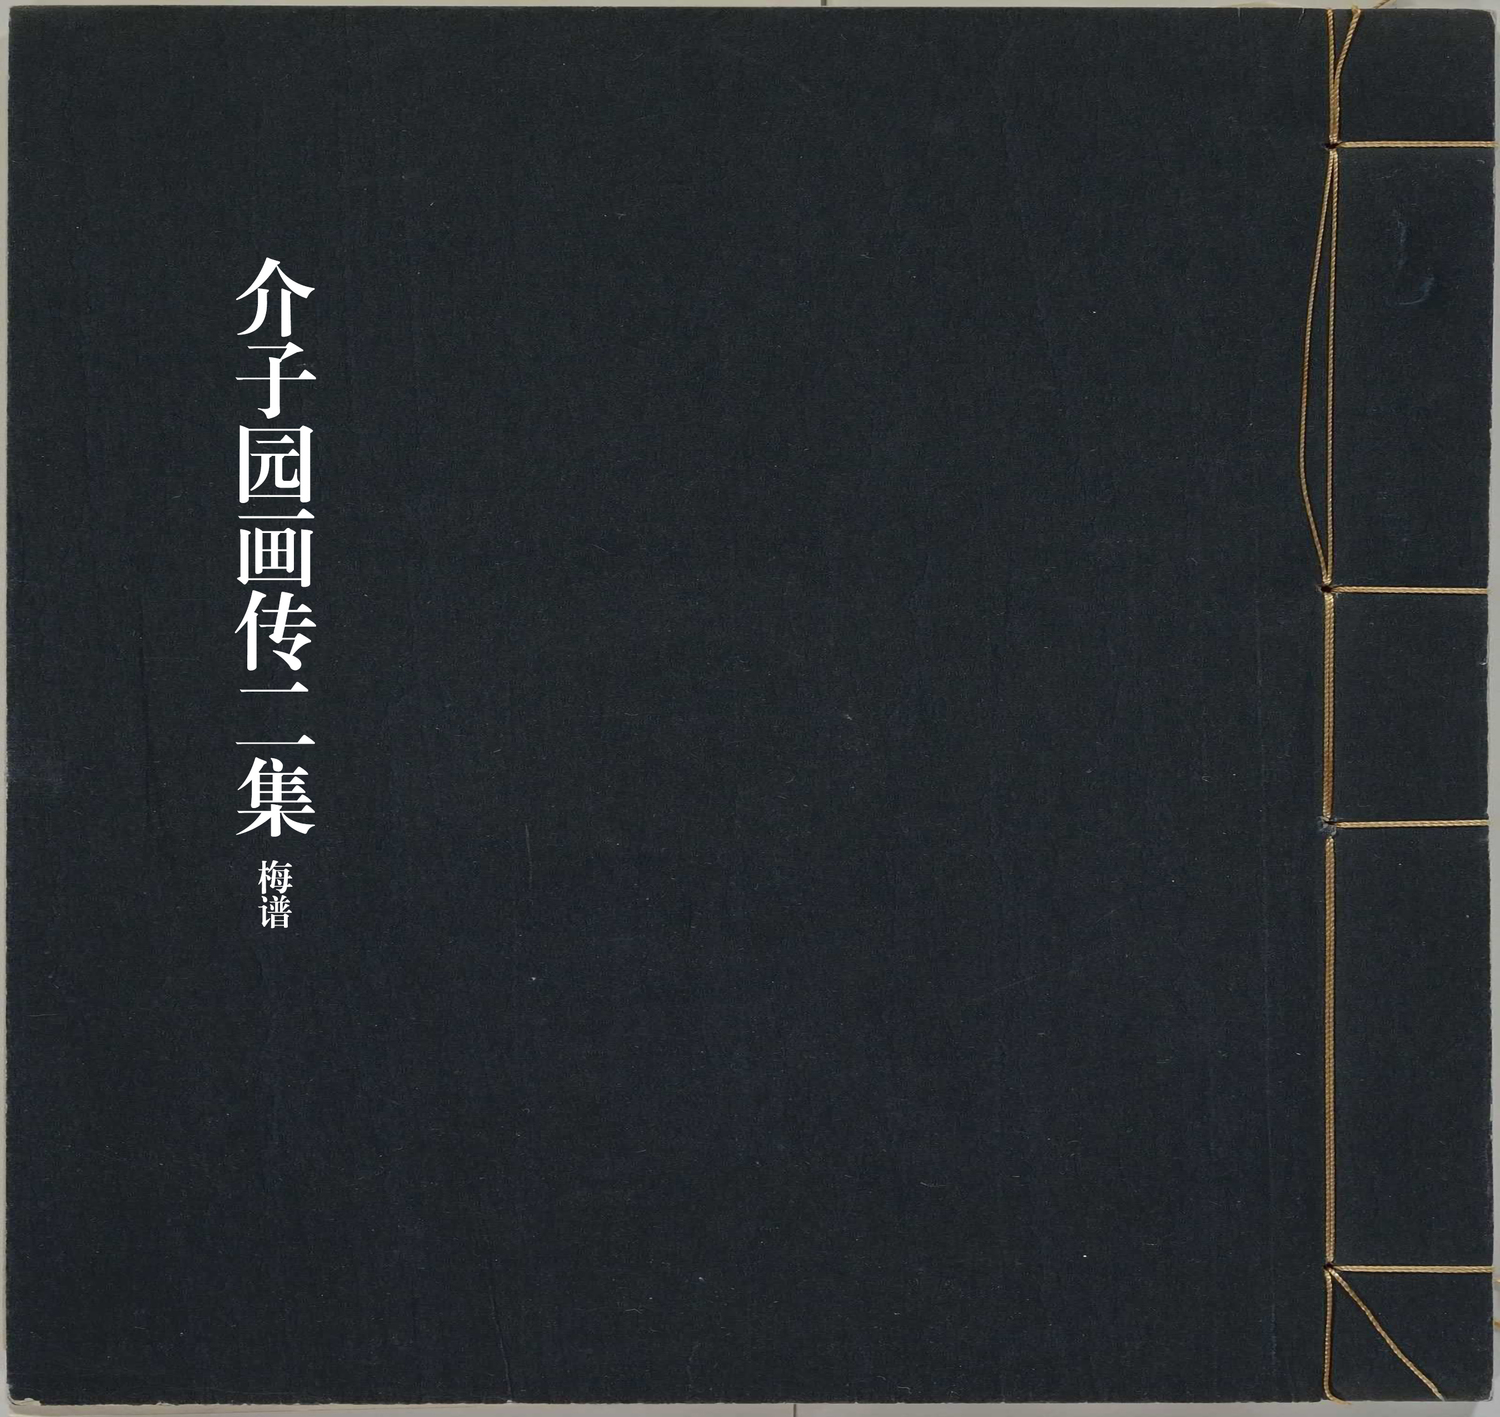 介子园画传二集
梅谱